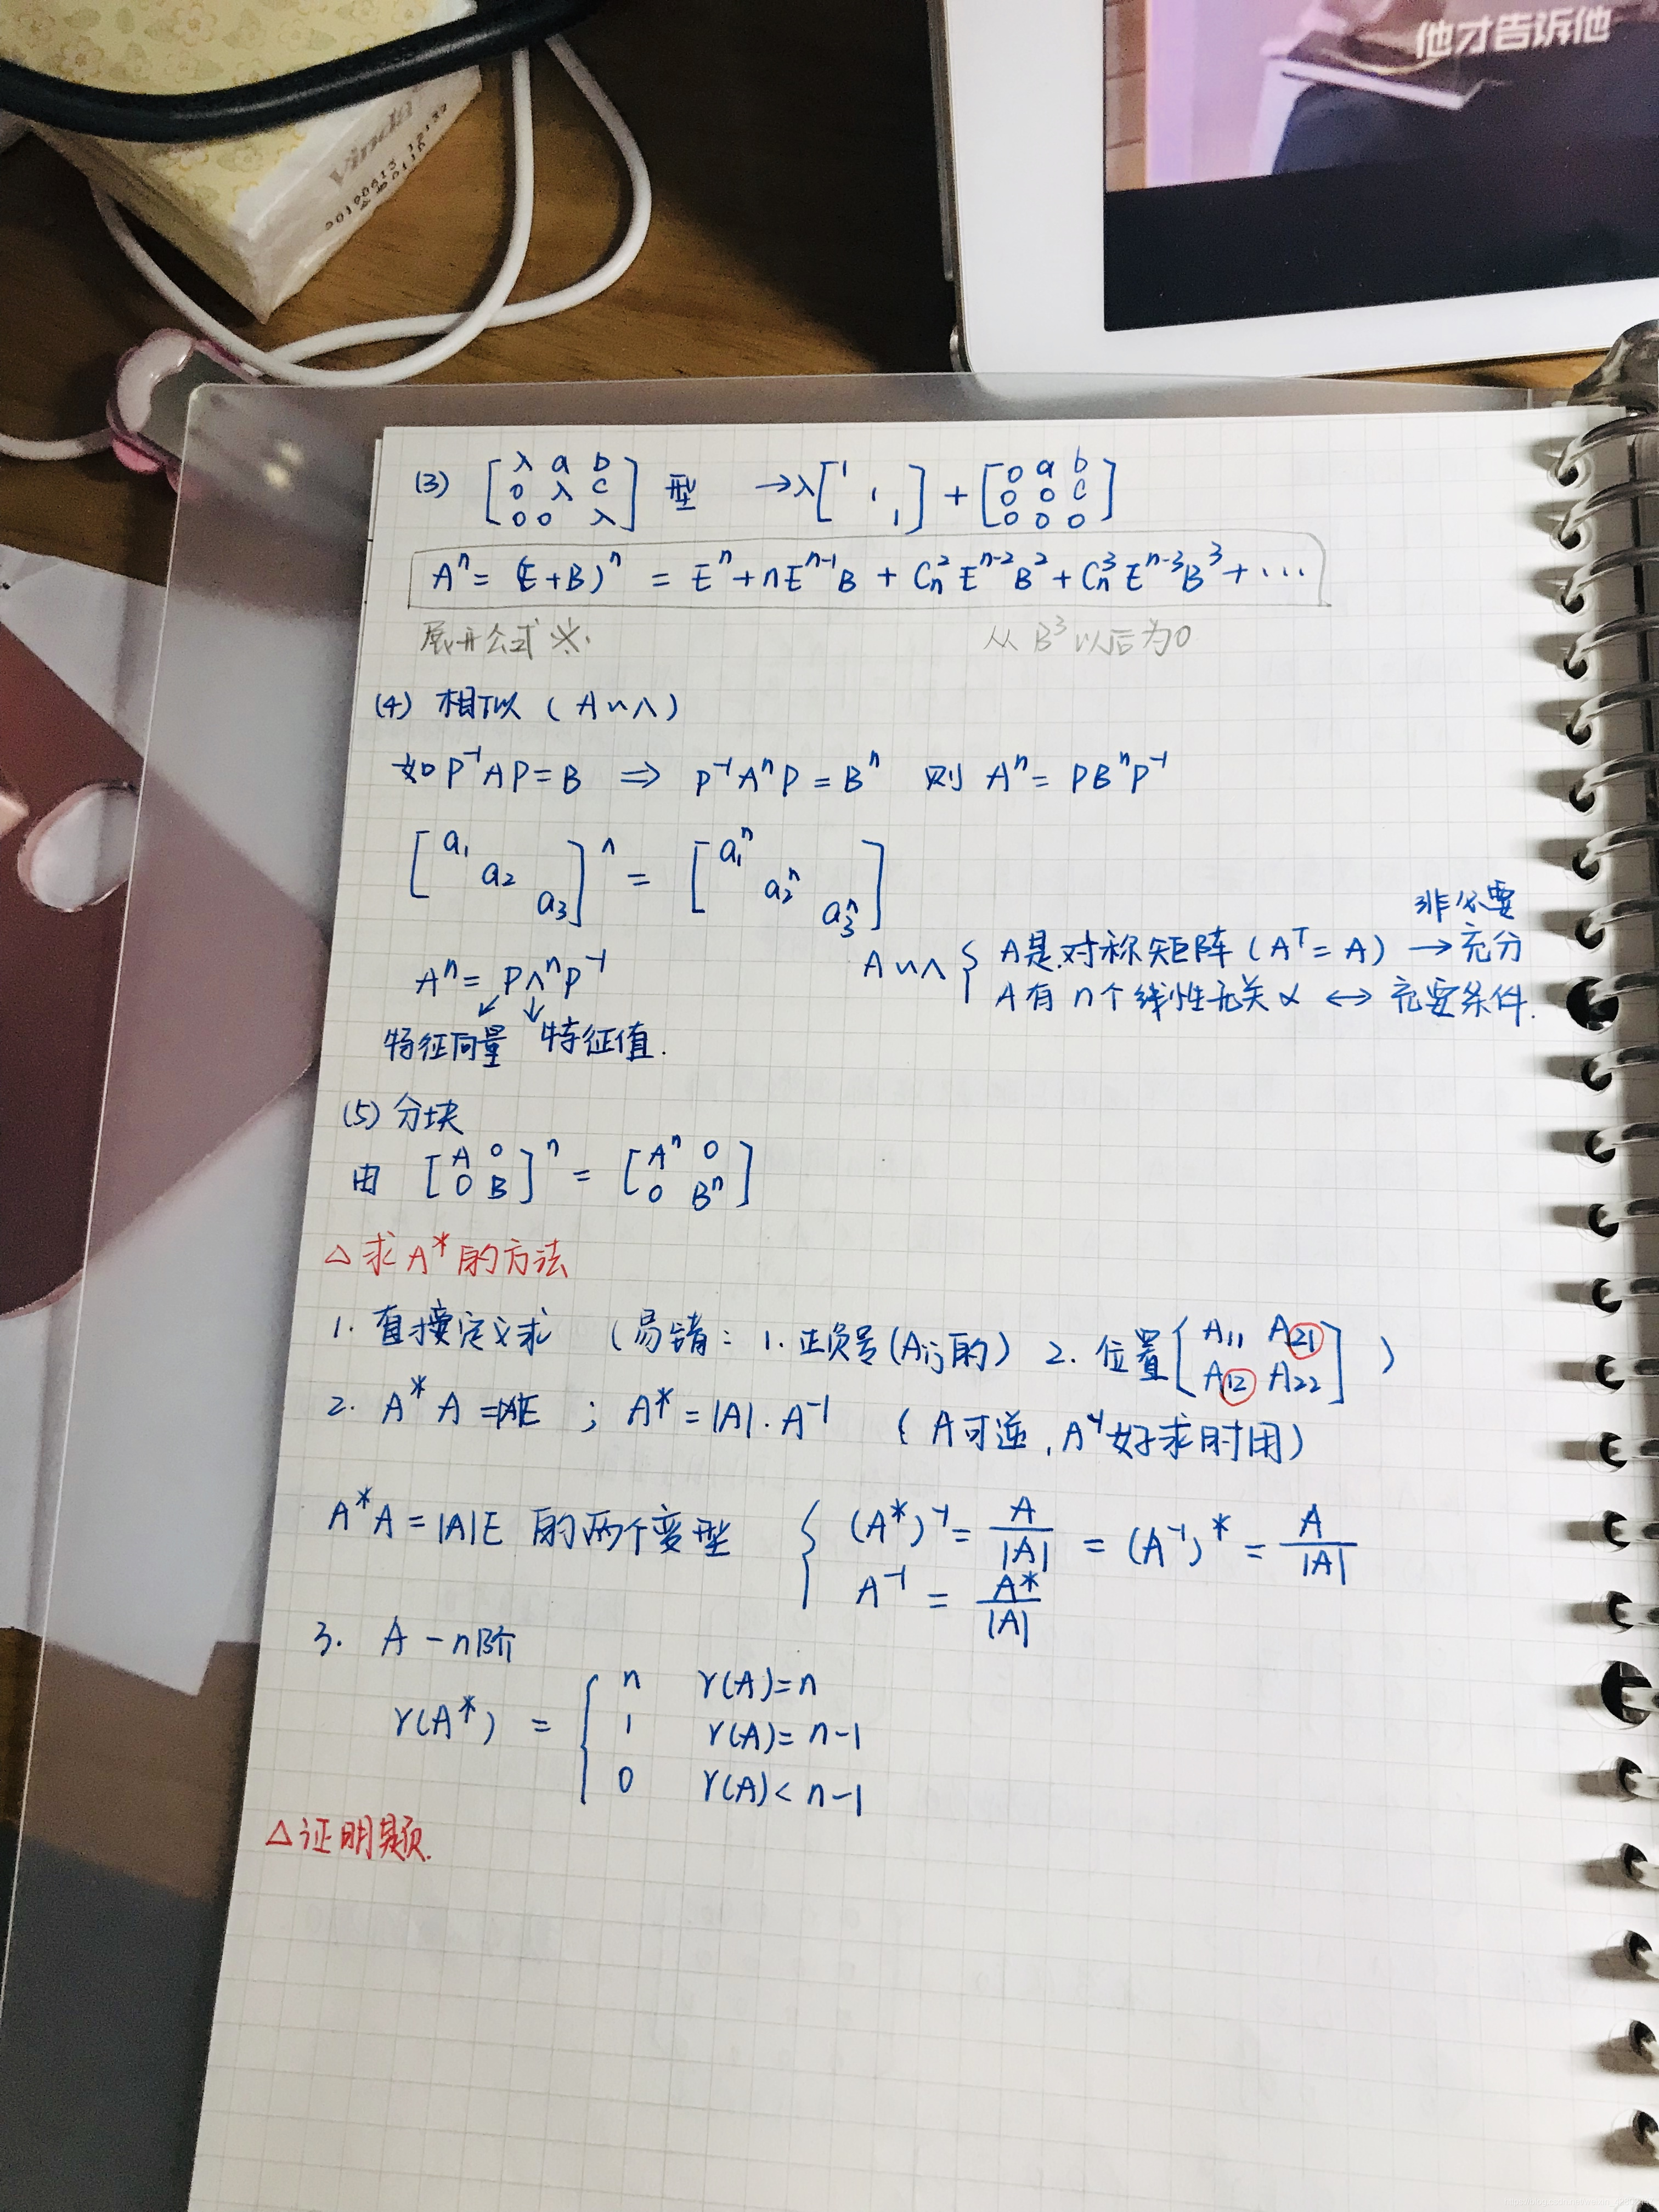 他才告诉他
Vinda
(3) [λ a b; 0 λ c; 0 0 λ] 型 → λ[1 1 1] + [0 a b; 0 0 c; 0 0 0]
Aⁿ = (E+B)ⁿ = Eⁿ + nEⁿ⁻¹B + Cₙ²Eⁿ⁻²B² + Cₙ³Eⁿ⁻³B³ + ⋯
展开公式 ※
从 B³ 以后为0
(4) 相似 (A∽Λ)
如 P⁻¹AP = B ⇒ P⁻¹AⁿP = Bⁿ 则 Aⁿ = PBⁿP⁻¹
[a₁ a₂ a₃]ⁿ = [a₁ⁿ a₂ⁿ a₃ⁿ]
非必要
A∽Λ { A是对称矩阵 (Aᵀ = A) → 充分
A有 n个线性无关 α ↔ 充要条件.
Aⁿ = PΛⁿP⁻¹
特征向量 特征值.
(5) 分块
由 [A 0; 0 B]ⁿ = [Aⁿ 0; 0 Bⁿ]
△ 求 A* 的方法
1. 直接定义求 (易错: 1. 正负号 (Aij的) 2. 位置 [A₁₁ A₂₁; A₁₂ A₂₂] )
2. A*A = |A|E ; A* = |A|·A⁻¹ (A可逆, A⁻¹好求时用)
A*A = |A|E 的两个变型 { (A*)⁻¹ = A/|A| = (A⁻¹)* = A/|A|
A⁻¹ = A*/|A|
3. A - n阶
r(A*) = { n r(A)=n
1 r(A)= n-1
0 r(A)< n-1
△ 证明题.